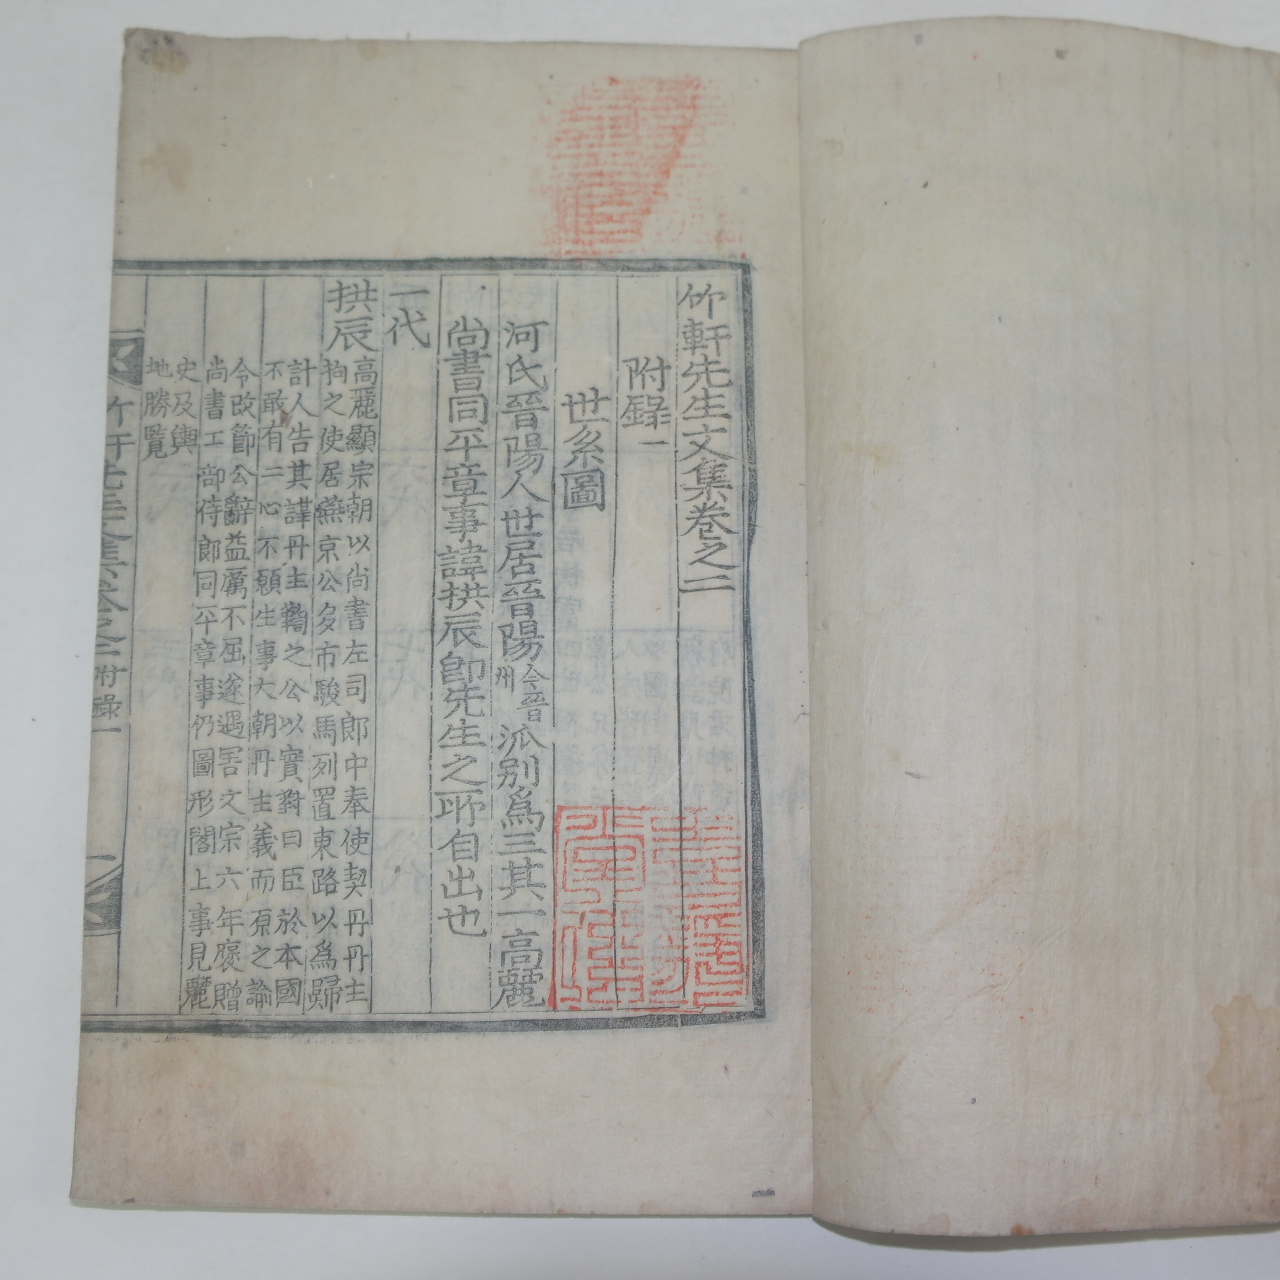 竹軒先生文集卷之二
附錄一
世系圖
河氏晉陽人世居晉陽今晉州派別爲三其一高麗
尚書同平章事諱拱辰卽先生之所自出也
一代
拱辰
高麗顯宗朝以尚書左司郎中奉使契丹丹主
拘之使居燕京公多市駿馬列置東路以爲歸
計人告其謀丹主鞫之公以實對曰臣於本國
不敢有二心不願生事大朝丹主義而原之諭
令改節公辭益厲不屈遂遇害文宗六年褒贈
尚書工部侍郎同平章事仍圖形閣上事見麗
史及輿
地勝覽
竹軒先生文集卷之二附錄一